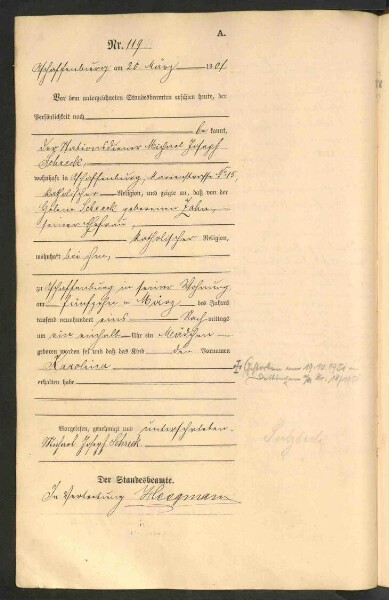 A.
Nr. 119
Aschaffenburg am 20 März 1901
Vor dem unterzeichneten Standesbeamten erschien heute, der
Persönlichkeit nach
be kannt,
der Stationsdiener Michael Joseph
Schreck,
wohnhaft in Aschaffenburg,
katholischer Religion, und zeigte an, daß von der
Helene Schreck geborenen Zahn,
seiner Ehefrau,
katholischer Religion,
wohnhaft bei ihm,
zu Aschaffenburg in seiner Wohnung
am fünfzehn März des Jahres
tausend neunhundert eins Nachmittags
um ein einhalb Uhr ein Mädchen
geboren worden sei und daß das Kind den Vornamen
Karolina
erhalten habe
Gestorben am 19.10.1951
Vorgelesen, genehmigt und unterschrieben.
Michael Joseph Schreck
Der Standesbeamte.
In Vertretung